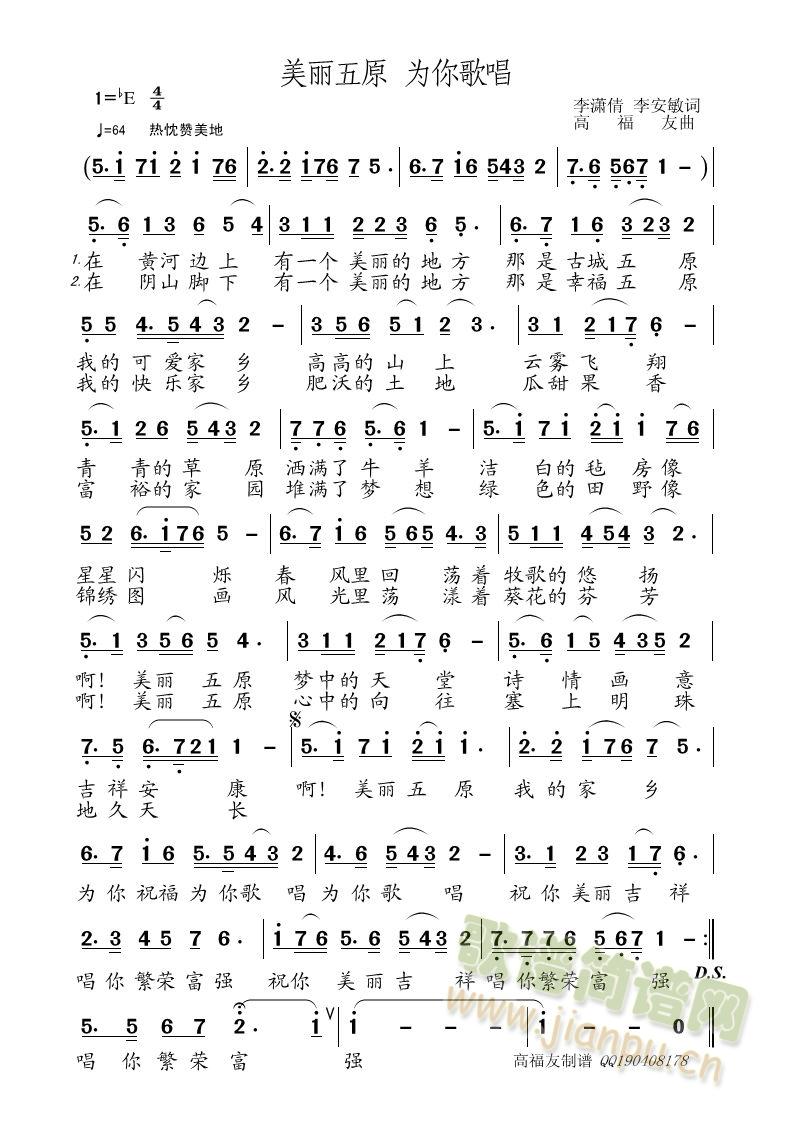 美丽五原 为你歌唱
1=♭E 4/4
李潇倩 李安敏词
♩=64 热忱赞美地
高福友曲
(5. i 7i 2 i 76 | 2. 2 i76 7 5. | 6. 7 i6 543 2 | 7. 6 567 1 - )|
5. 6 1 3 6 5 4 | 3 1 1 2 2 3 6 5. | 6. 7 1 6 3 2 3 |
1.在 黄河 边上 有一个 美丽的 地方 那是古城五 原
2.在 阴山 脚下 有一个 美丽的 地方 那是幸福五 原
5 5 4. 5 4 3 2 - | 3 5 6 5 1 2 3. | 3 1 2 1 7 6 - |
我的 可 爱家 乡 高高的 山 上 云雾飞 翔
我的 快 乐家 乡 肥沃的 土 地 瓜甜果 香
5. 1 2 6 5 4 3 2 | 7 7 6 5. 6 1 - | 5. i 7 i 2 i 7 6 |
青 青的 草 原 洒满了 牛 羊 洁 白的 毡 房像
富 裕的 家 园 堆满了 梦 想 绿 色的 田 野像
5 2 6. i 7 6 5 - | 6. 7 i 6 5 6 5 4. 3 | 5 1 1 4 5 4 3 2. |
星星 闪 烁 春 风里 回 荡着 牧歌的 悠 扬
锦绣 图 画 风 光里 荡 漾着 葵花的 芬 芳
5. 1 3 5 6 5 4. | 3 1 1 2 1 7 6 - | 5. 6 1 5 4 3 5 2 |
啊! 美丽 五原 梦中的 天 堂 诗 情 画 意
啊! 美丽 五原 心中的 向 往 塞 上 明 珠
7. 5 6. 7 2 1 1 - | 5. i 7 i 2 i. | 2. 2 i 7 6 7 5. |
吉祥安 康 啊! 美丽五 原 我的家 乡
地久天 长
6. 7 i 6 5. 5 4 3 2 | 4. 6 5 4 3 2 - | 3. 1 2 3 1 7 6. |
为你 祝福 为 你歌 唱 为 你 歌 唱 祝 你 美丽吉 祥
2. 3 4 5 7 6. | i 7 6 5. 6 5 4 3 2 | 7. 7 7 6 5 6 7 1 - :|
唱你 繁荣 富强 祝你 美丽吉 祥 唱你繁荣 富 强
D.S.
5. 5 6 7 2. i | i - - - | i - - 0 |
唱 你 繁 荣 富 强
高福友制谱 QQ190408178
歌谱简谱网
www.jianpu.cn